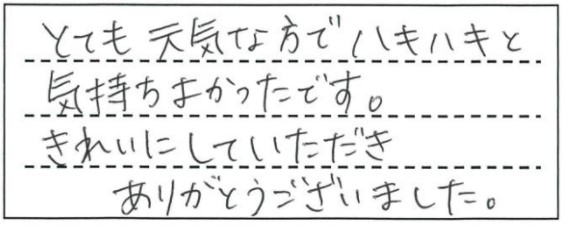 とても元気な方でハキハキと
気持ちよかったです。
きれいにしていただき
ありがとうございました。